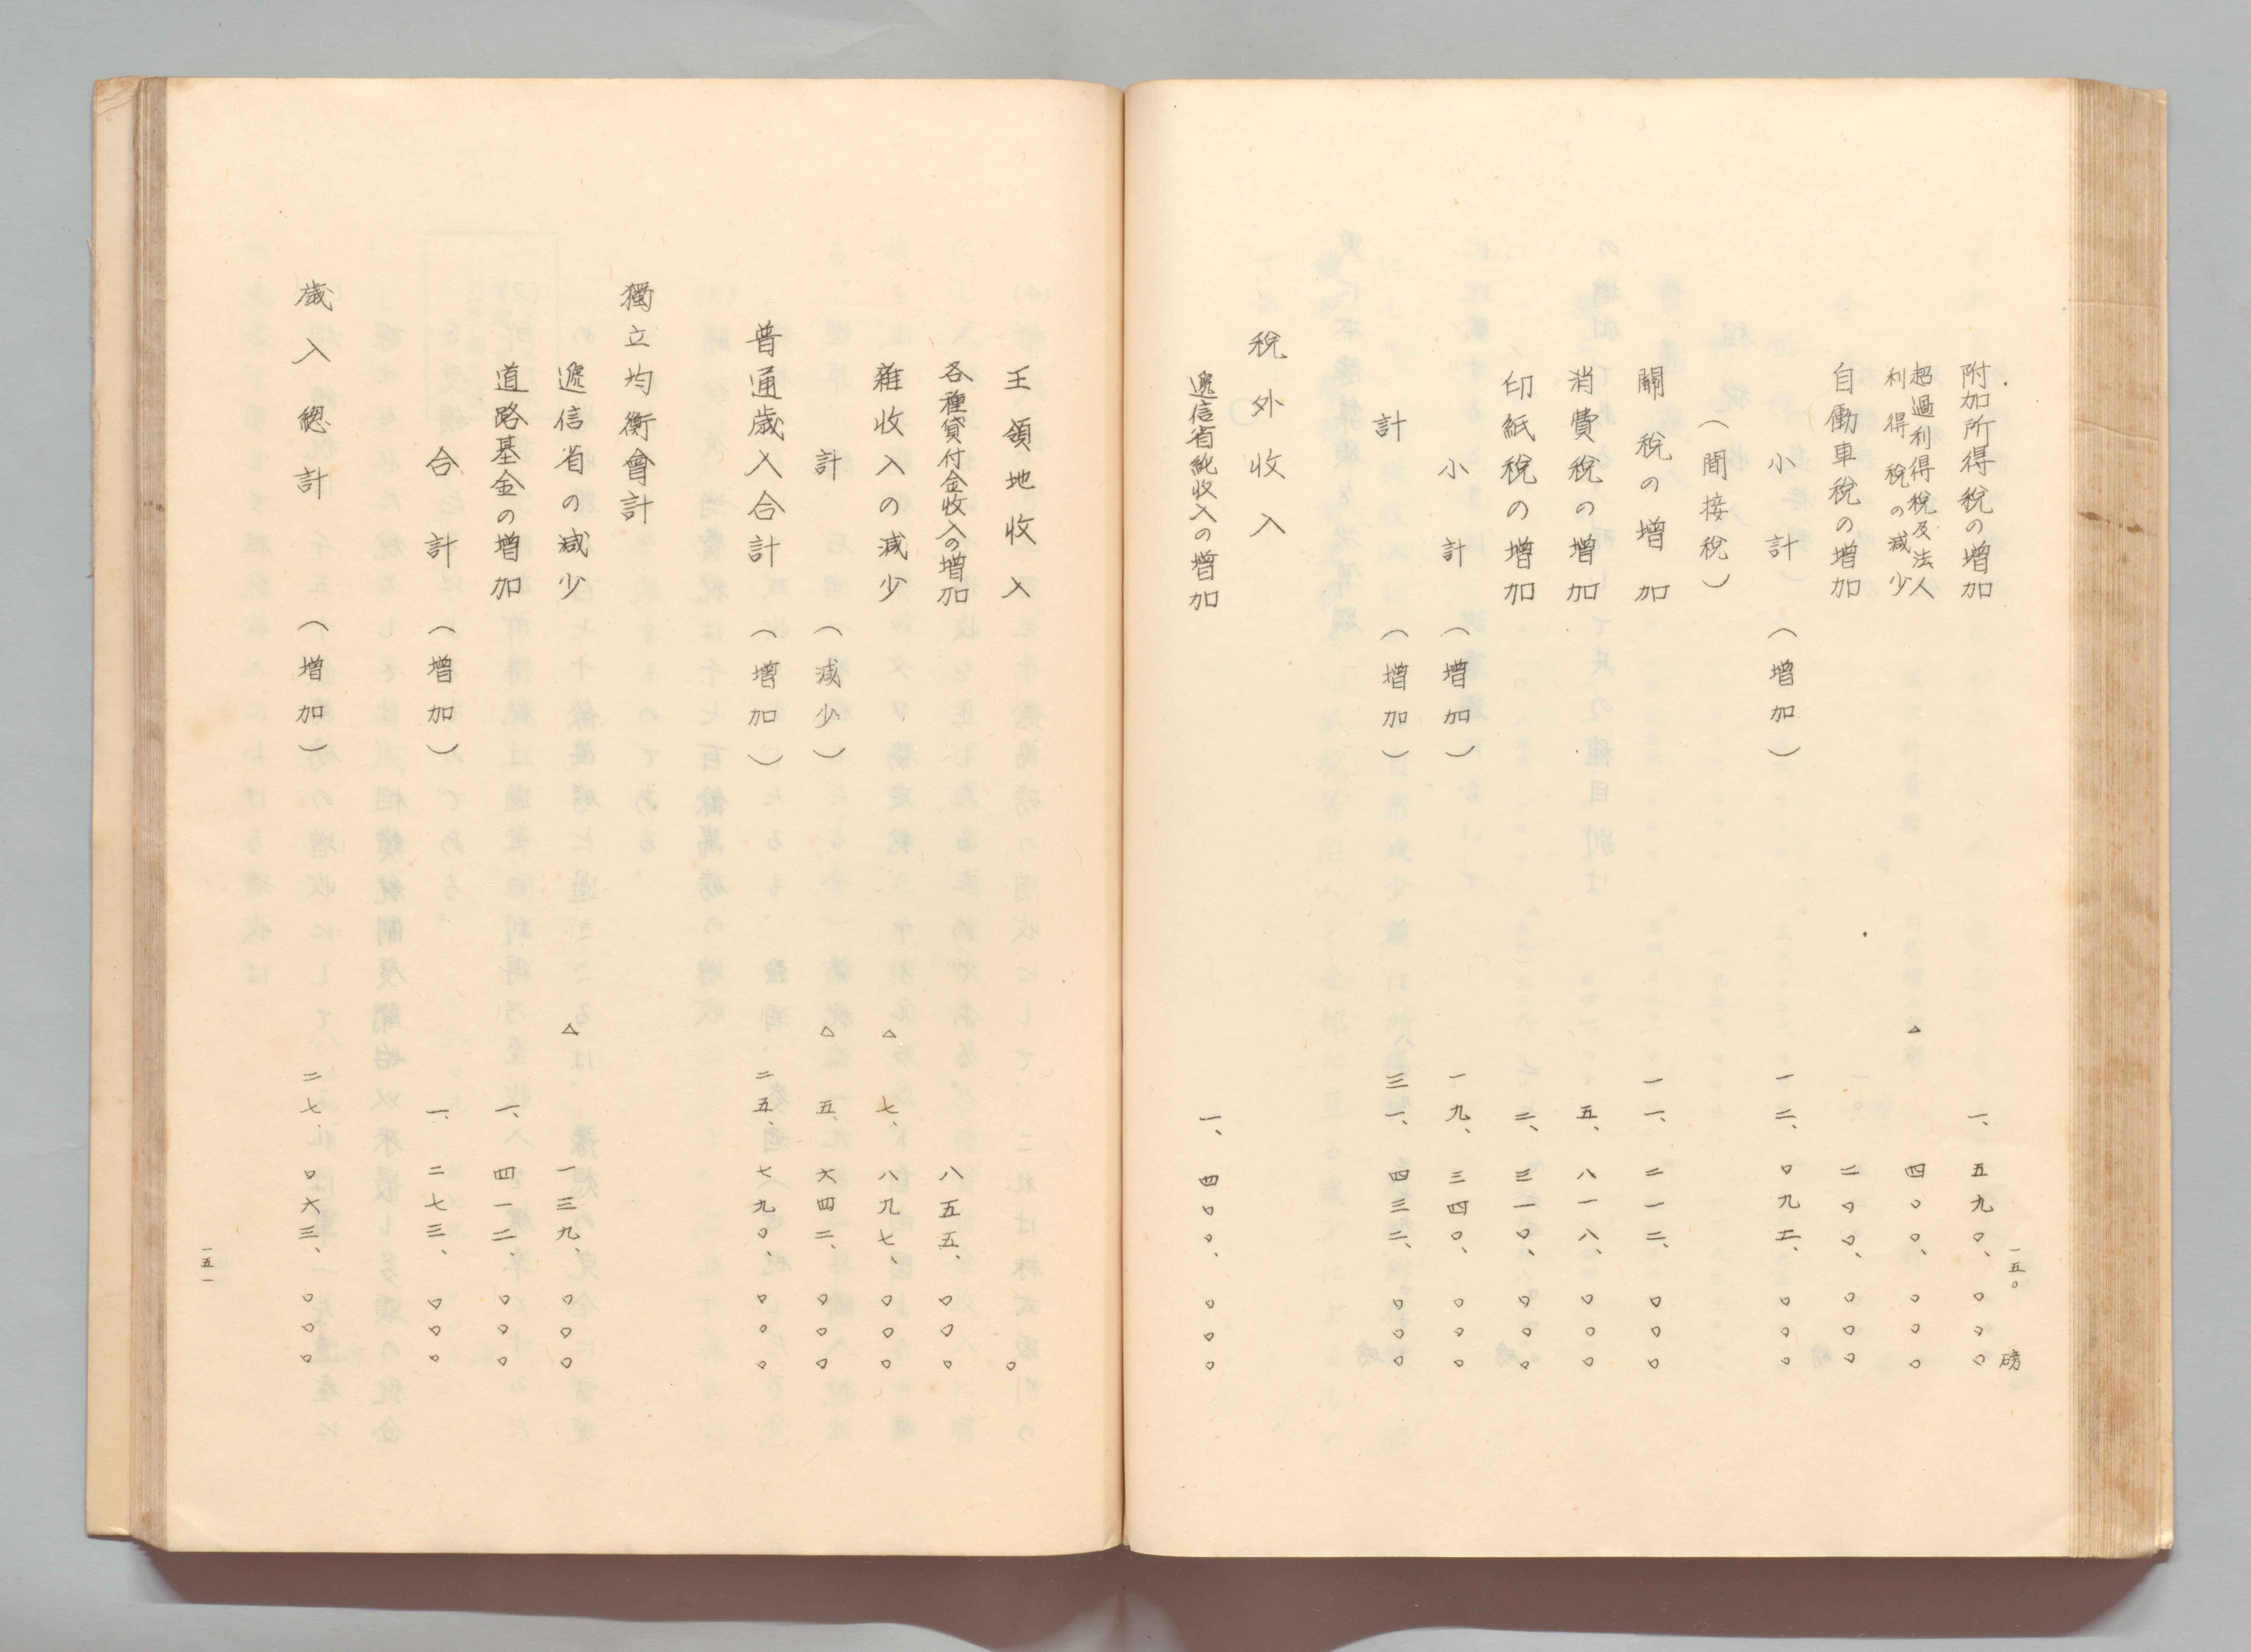 一五〇
磅
附加所得稅の增加 一、五九〇、〇〇〇
超過利得稅及法人
利得稅の減少 △ 四〇〇、〇〇〇
自働車稅の增加 二〇〇、〇〇〇
小計（增加） 一二、〇九二、〇〇〇
（間接稅）
關稅の增加 一一、二一二、〇〇〇
消費稅の增加 五、八一八、〇〇〇
印紙稅の增加 二、三一〇、〇〇〇
小計（增加） 一九、三四〇、〇〇〇
計（增加） 三一、四三二、〇〇〇
稅外收入
遞信省純收入の增加 一、四〇〇、〇〇〇
王領地收入 〇
各種貸付金收入の增加 八五五、〇〇〇
雜收入の減少 △ 七、八九七、〇〇〇
計（減少） △ 五、六四二、〇〇〇
普通歲入合計（增加） 二五、七九〇、〇〇〇
獨立均衡會計
遞信省の減少 △ 一三九、〇〇〇
道路基金の增加 一、四一二、〇〇〇
合計（增加） 一、二七三、〇〇〇
歲入總計（增加） 二七、〇六三、〇〇〇
一五一